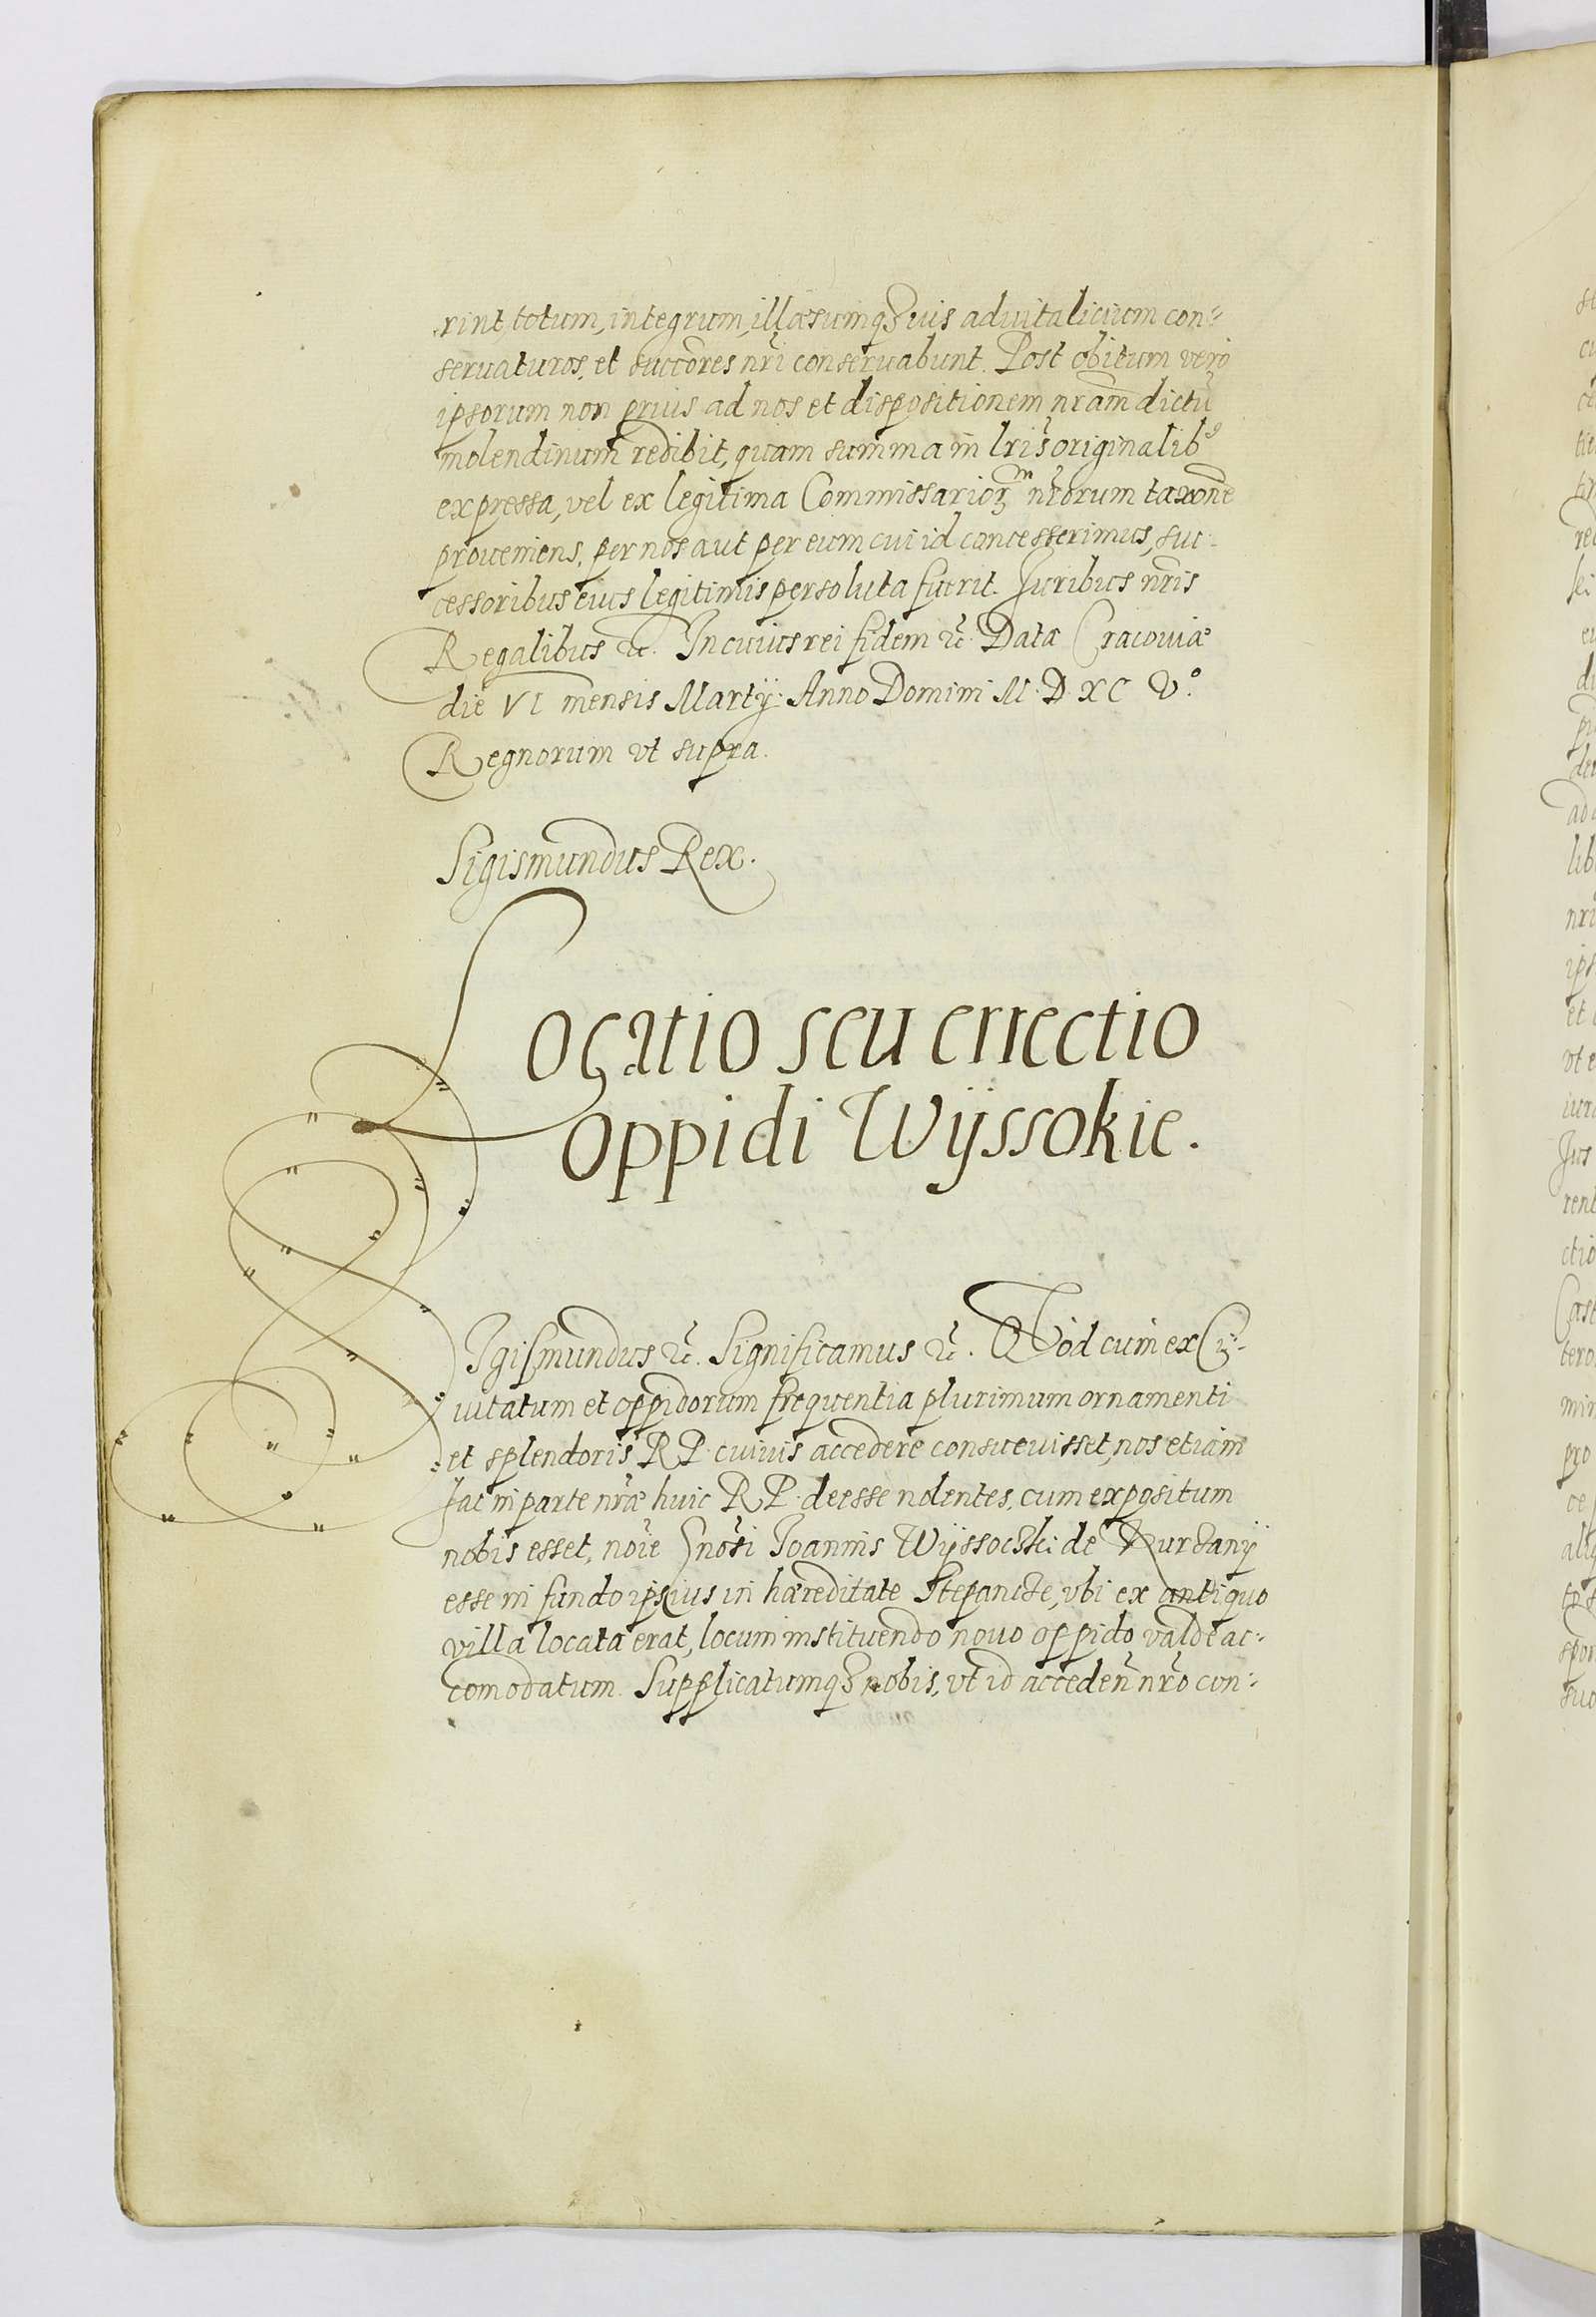 rint, totum, integrum, illæsumqȝ ius aduitalicium con-
seruaturos, et succōres nr̄i conseruabunt. Post obitum vero
ipsorum non prius ad nos et dispositionem nram̄ dictū
molendinum redibit, quam summa in lris̄ originalibꝰ
expressa, vel ex legitima Commissarioꝝ nr̄orum taxon̄e
proueniens, per nos aut per eum cui id concesserimus, suc-
cessoribus eius legitimis persoluta fuerit. Juribus nr̄is
Regalibus &c. In cuius rei fidem &c. Data Cracouiæ
die VI mensis Martij. Anno Domini M. D XC V°.
Regnorum vt supra.
Sigismundus Rex.
Locatio seu errectio
oppidi Wijssokie.
SIgismundus &c. Significamus &c. Quod cum ex Ci-
uitatum et oppidorum frequentia plurimum ornamenti
et splendoris RP. cuiuis accedere consueuisset, nos etiam
hac in parte nr̄æ huic RP. deesse nolentes, cum expositum
nobis esset, noīe Gnosi Joannis Wijssoczki de
esse in fundo ipsius in hæreditate vbi ex antiquo
villa locata erat, locum instituendo nouo oppido valde ac-
comodatum. Supplicatumqȝ nobis, vt id acceden̄ nr̄o con-